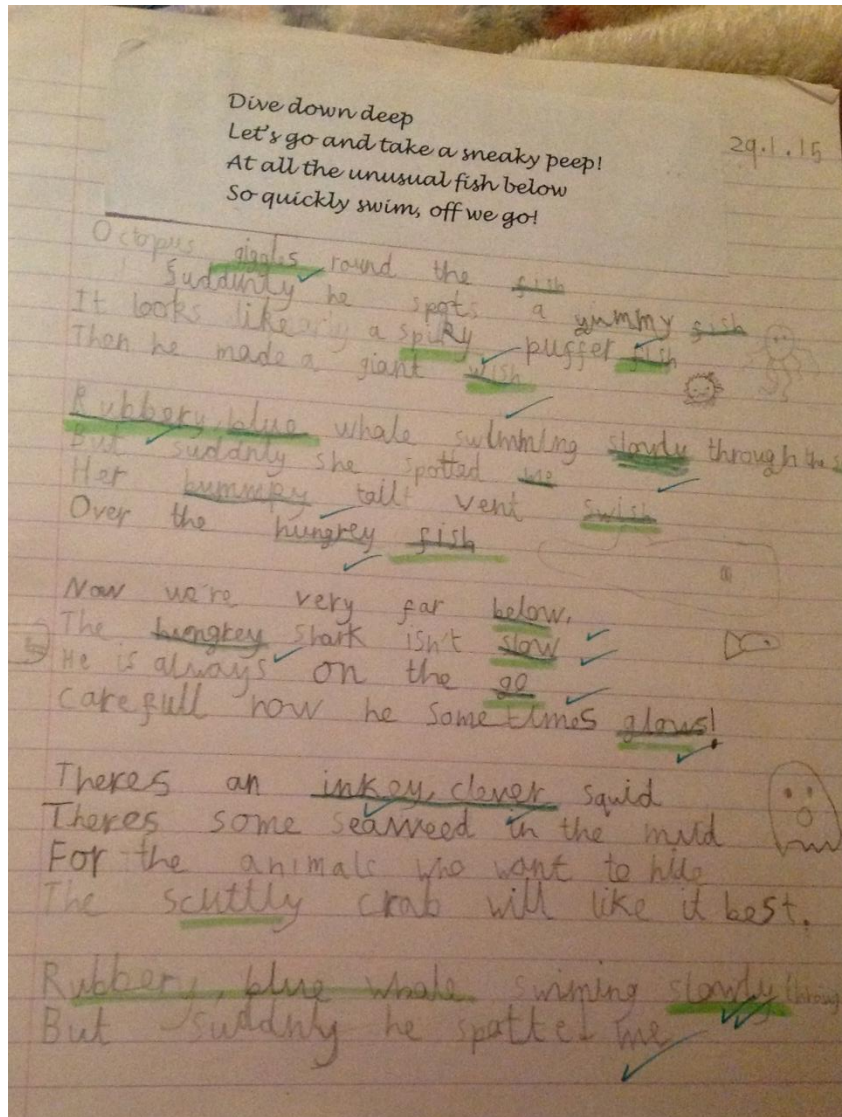 Dive down deep
Let's go and take a sneaky peep!
At all the unusual fish below
So quickly swim, off we go!
29.1.15
Octopus giggles round the fish
Suddunly he spots a yummy fish
It looks like a spiky puffer fish
Then he made a giant wish
Rubbery, blue whale swimming slowly through the
But suddnly she spotted me
Her bummpy tail vent swish
Over the hungrey fish
Now we're very far below,
The hungrey shark isn't slow
He is always on the go
Carefull now he sometimes glows!
Theres an inkey, clever squid
Theres some seaweed in the mud
For the animals who want to hide
The scuttly crab will like it best.
Rubbery, blue whale swiming slowly throug
But suddnly he spotted me